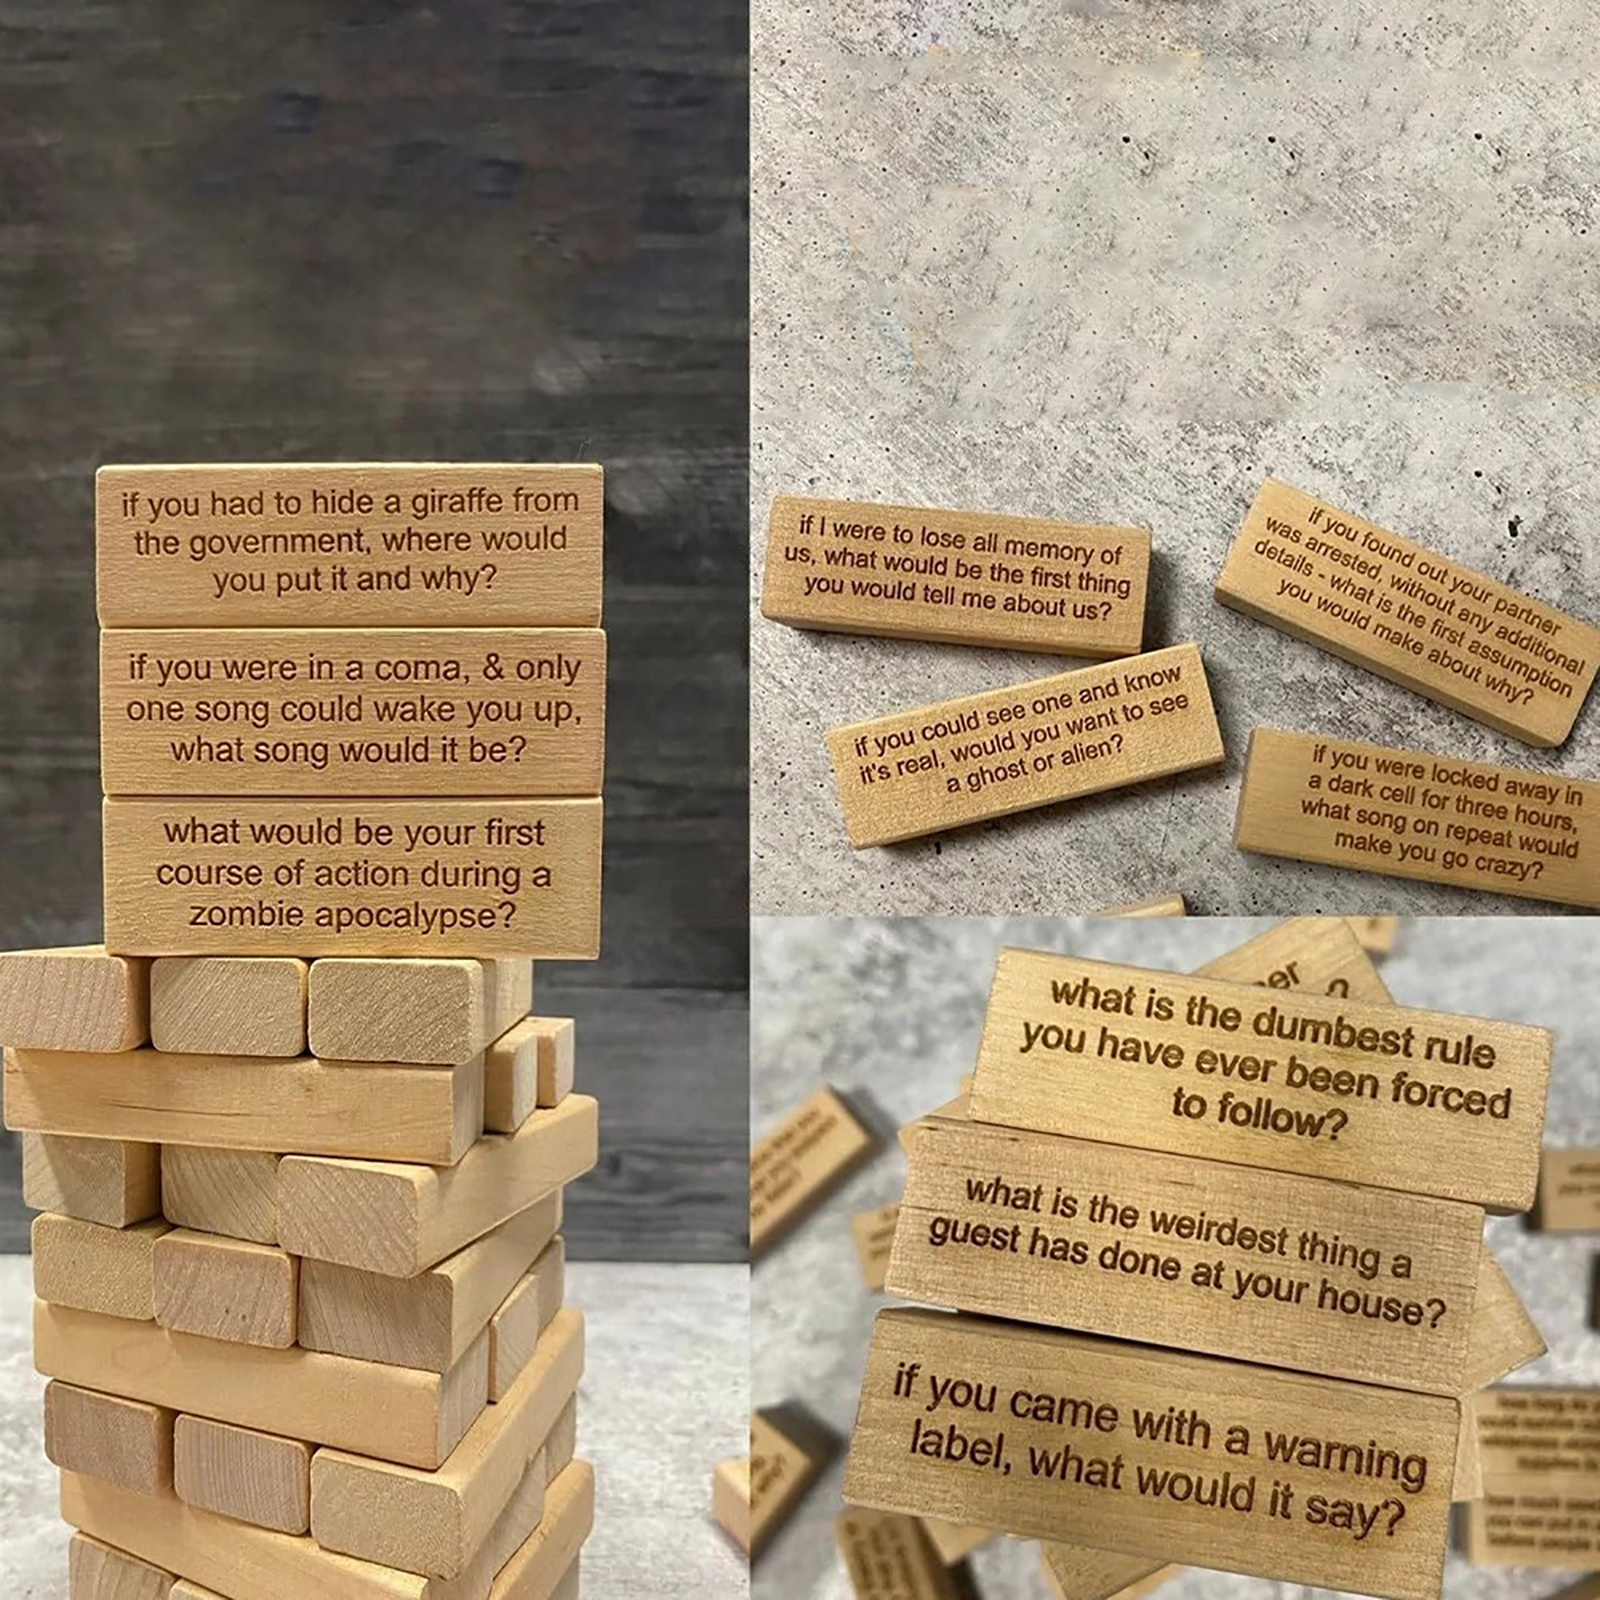 if you had to hide a giraffe from
the government, where would
you put it and why?
if you were in a coma, & only
one song could wake you up,
what song would it be?
what would be your first
course of action during a
zombie apocalypse?
if I were to lose all memory of
us, what would be the first thing
you would tell me about us?
if you found out your partner
was arrested, without any additional
details - what is the first assumption
you would make about why?
if you could see one and know
it's real, would you want to see
a ghost or alien?
if you were locked away in
a dark cell for three hours,
what song on repeat would
make you go crazy?
what is the dumbest rule
you have ever been forced
to follow?
what is the weirdest thing a
guest has done at your house?
if you came with a warning
label, what would it say?